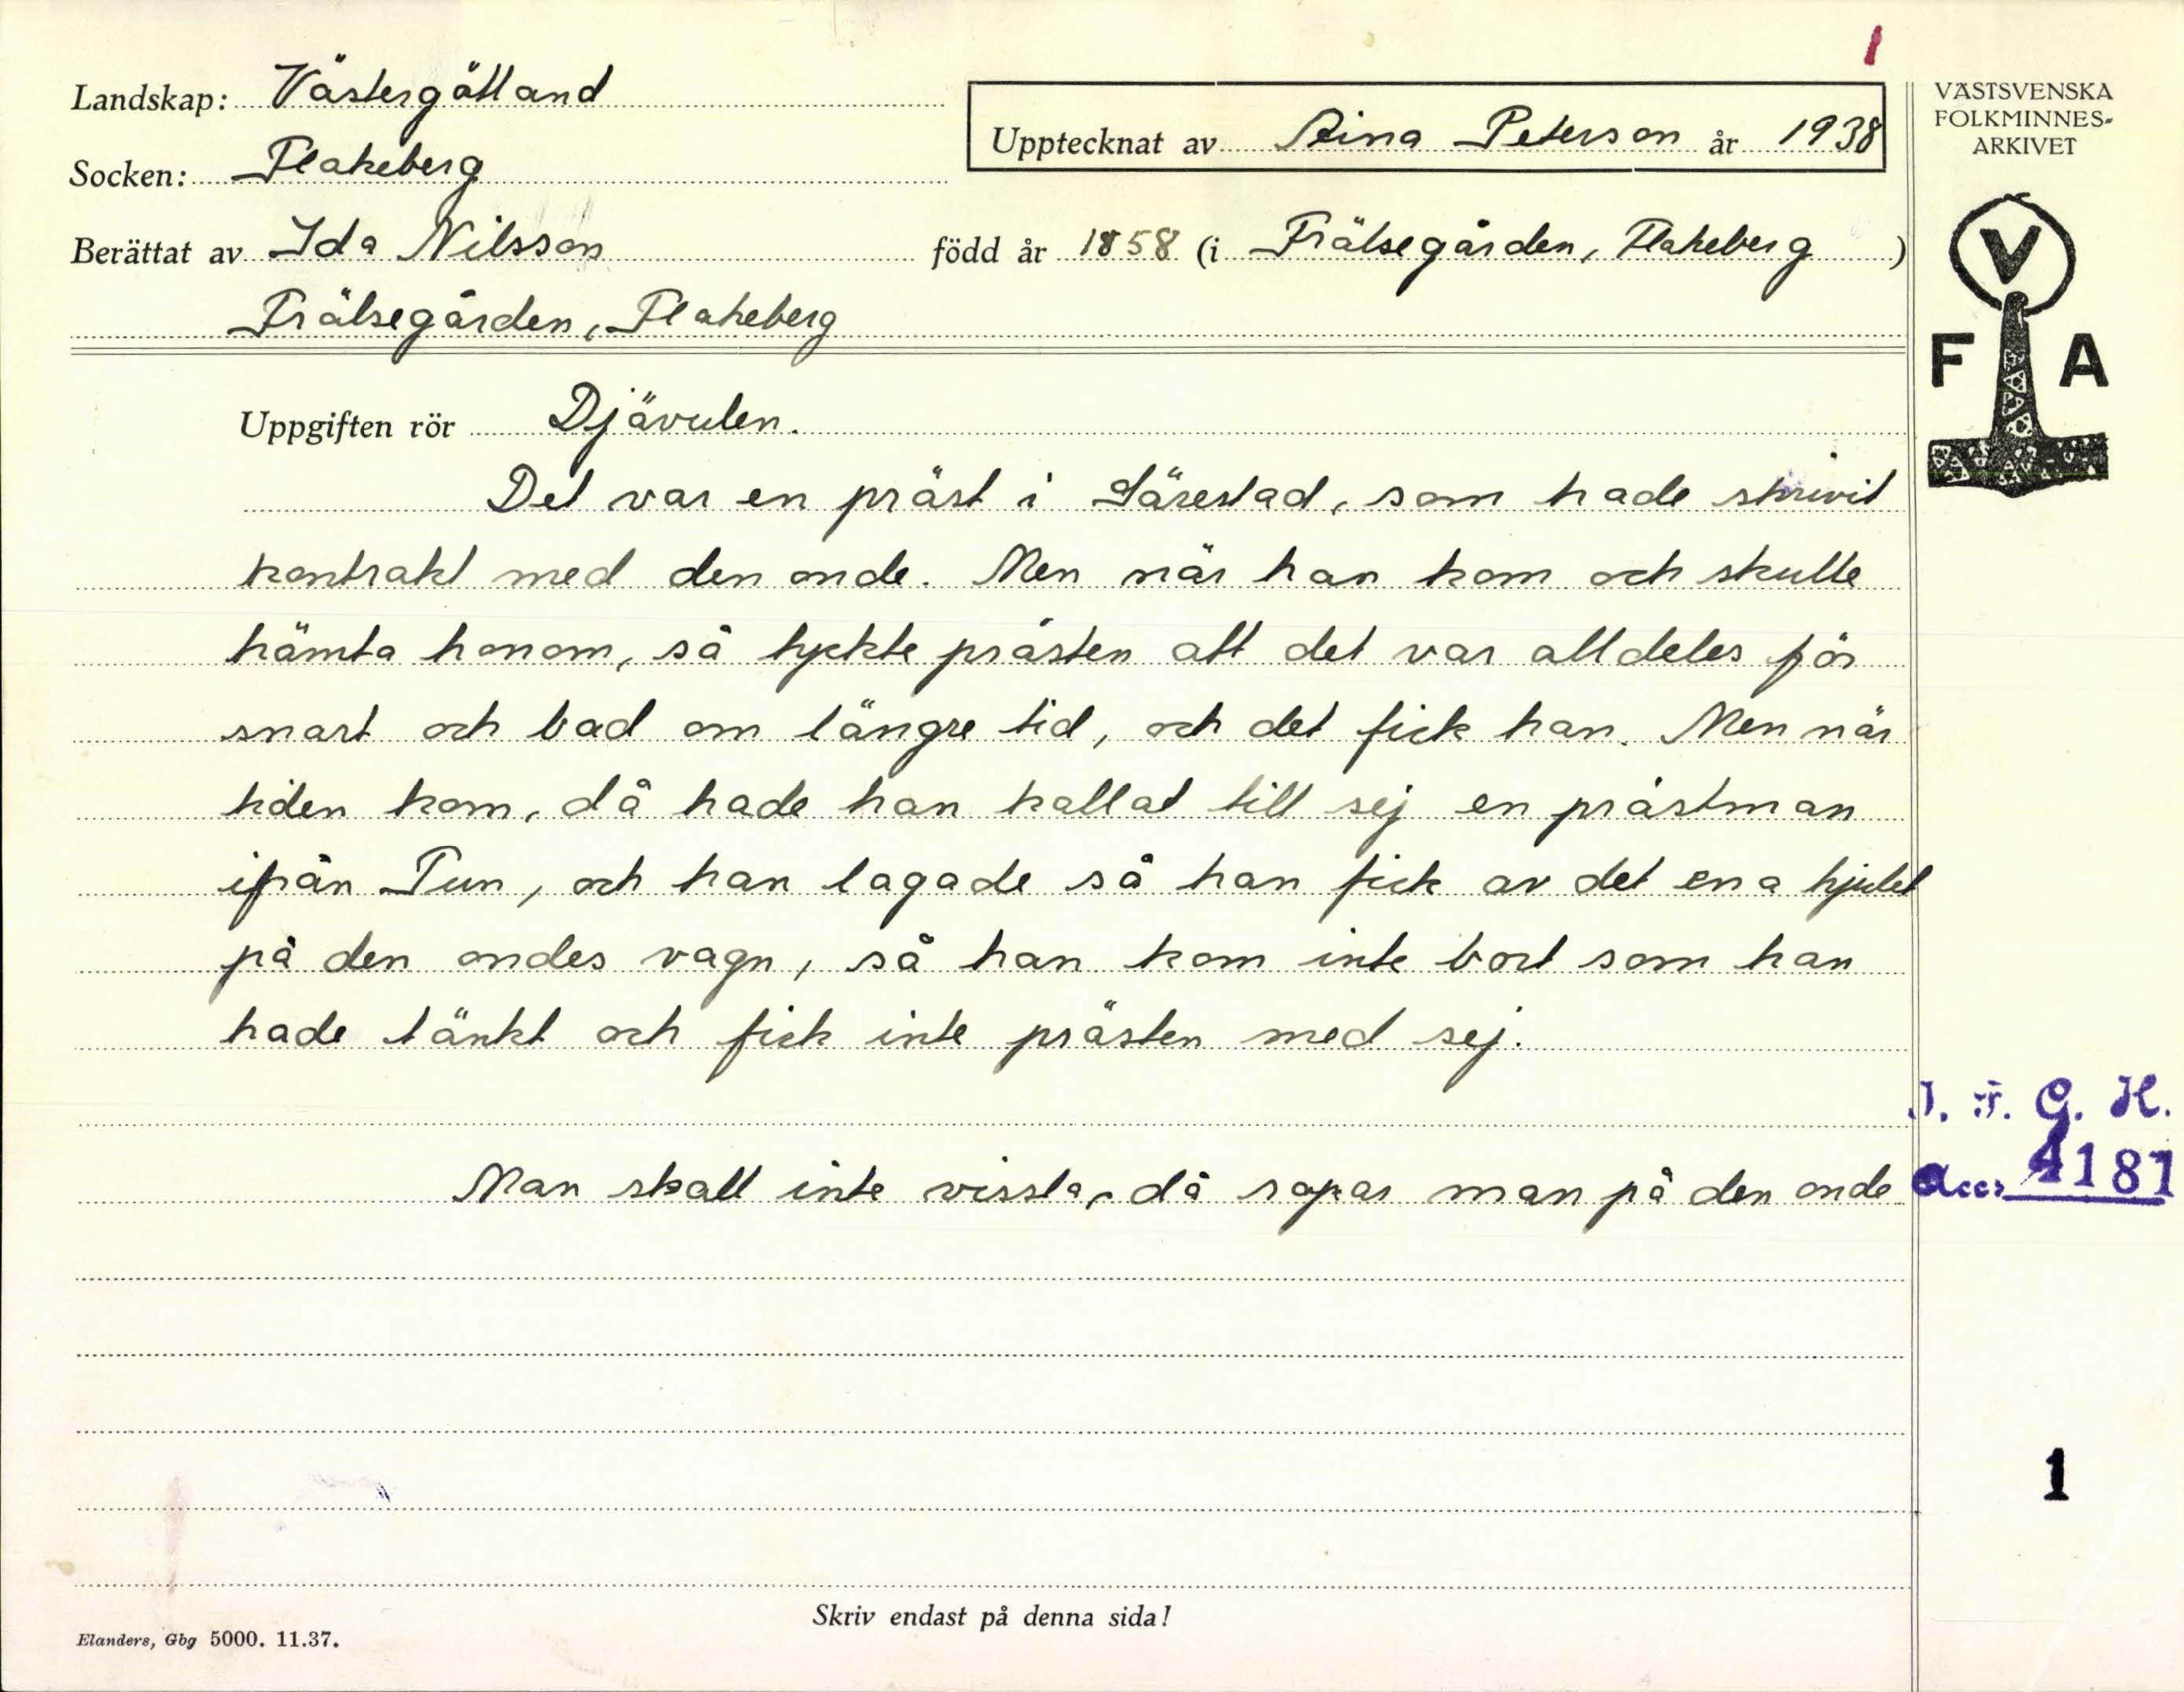 1
Landskap: Västergötland
Upptecknat av Aina Peterson år 1938
VÄSTSVENSKA
FOLKMINNES-
ARKIVET
Socken: Flakeberg
Berättat av Ida Nilsson född år 1858 (i Frälsegården, Flakeberg )
Frälsegården, Flakeberg
V
F A
Uppgiften rör Djävulen.
Det var en präst i Särestad, som hade skrivit
kontrakt med den onde. Men när han kom och skulle
hämta honom, så tyckte prästen att det var alldeles för
snart och bad om längre tid, och det fick han. Men när
tiden kom, då hade han kallat till sej en prästman
ifrån Tun, och han lagade så han fick av det ena hjulet
på den ondes vagn, så han kom inte bort som han
hade tänkt och fick inte prästen med sej.
I. F. G. H.
Acc. 4187
Man skall inte vissla, då ropar man på den onde
1
Skriv endast på denna sida!
Elanders, Gbg 5000. 11.37.